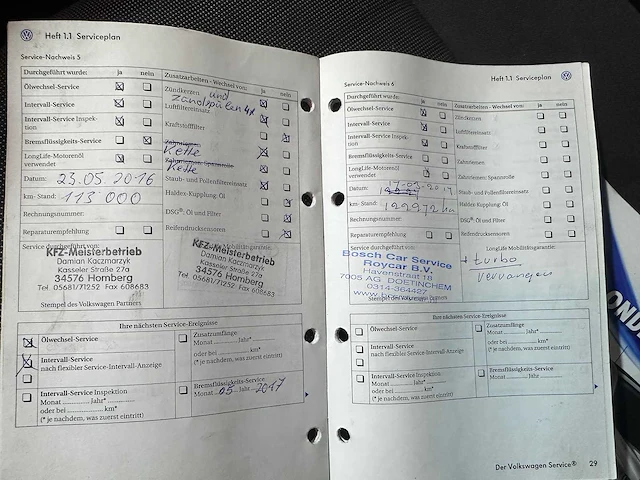 Heft 1.1 Serviceplan
Service-Nachweis 5
Durchgeführt wurde: ja nein
Ölwechsel-Service
Intervall-Service
Intervall-Service Inspektion
Bremsflüssigkeits-Service
LongLife-Motorenöl verwendet
Datum: 23.05.2016
km-Stand: 113 000
Rechnungsnummer:
Reparaturempfehlung
Service durchgeführt von:
KFZ-Meisterbetrieb
Damian Kaczmarzyk
Kasseler Straße 27a
34576 Homberg
Tel. 05681/71252 Fax 608683
Stempel des Volkswagen Partners
Zusatzarbeiten - Wechsel von: ja nein
Zündkerzen und
Zündspulen 4x
Luftfiltereinsatz
Kraftstofffilter
Kette
Kette
Staub- und Pollenfiltereinsatz
Haldex-Kupplung: Öl
DSG®: Öl und Filter
Reifendrucksensoren
KFZ-Meisterbetrieb
Damian Kaczmarzyk
Kasseler Straße 27a
34576 Homberg
Tel. 05681/71252 Fax 608683
Ihre nächsten Service-Ereignisse
Ölwechsel-Service
Intervall-Service
nach flexibler Service-Intervall-Anzeige
Intervall-Service Inspektion
Monat Jahr*
oder bei km*
(* je nachdem, was zuerst eintritt)
Zusatzumfänge
Monat Jahr*
oder bei km*
(* je nachdem, was zuerst eintritt)
Bremsflüssigkeits-Service
Monat 05 Jahr 2017
Heft 1.1 Serviceplan
Service-Nachweis 6
Durchgeführt wurde: ja nein
Ölwechsel-Service
Intervall-Service
Intervall-Service Inspektion
Bremsflüssigkeits-Service
LongLife-Motorenöl verwendet
Datum:
km-Stand: 129972 km
Rechnungsnummer:
Reparaturempfehlung
Service durchgeführt von:
Bosch Car Service
Roycar B.V.
Havenstraat 18
7005 AG DOETINCHEM
0314-364427
Stempel des Volkswagen Partners
Zusatzarbeiten - Wechsel von: ja nein
Zündkerzen
Luftfiltereinsatz
Kraftstofffilter
Zahnriemen
Zahnriemen: Spannrolle
Staub- und Pollenfiltereinsatz
Haldex-Kupplung: Öl
DSG®: Öl und Filter
Reifendrucksensoren
LongLife Mobilitätsgarantie:
+ turbo
vervangen
Ihre nächsten Service-Ereignisse
Ölwechsel-Service
Intervall-Service
nach flexibler Service-Intervall-Anzeige
Intervall-Service Inspektion
Monat Jahr*
oder bei km*
(* je nachdem, was zuerst eintritt)
Zusatzumfänge
Monat Jahr*
oder bei km*
(* je nachdem, was zuerst eintritt)
Bremsflüssigkeits-Service
Monat Jahr
Der Volkswagen Service® 29